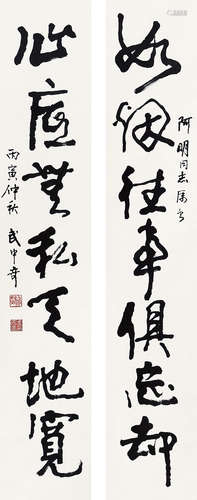 阿明同志属
如烟往事俱忘却
心底無私天地寬
丙寅仲秋 武中奇